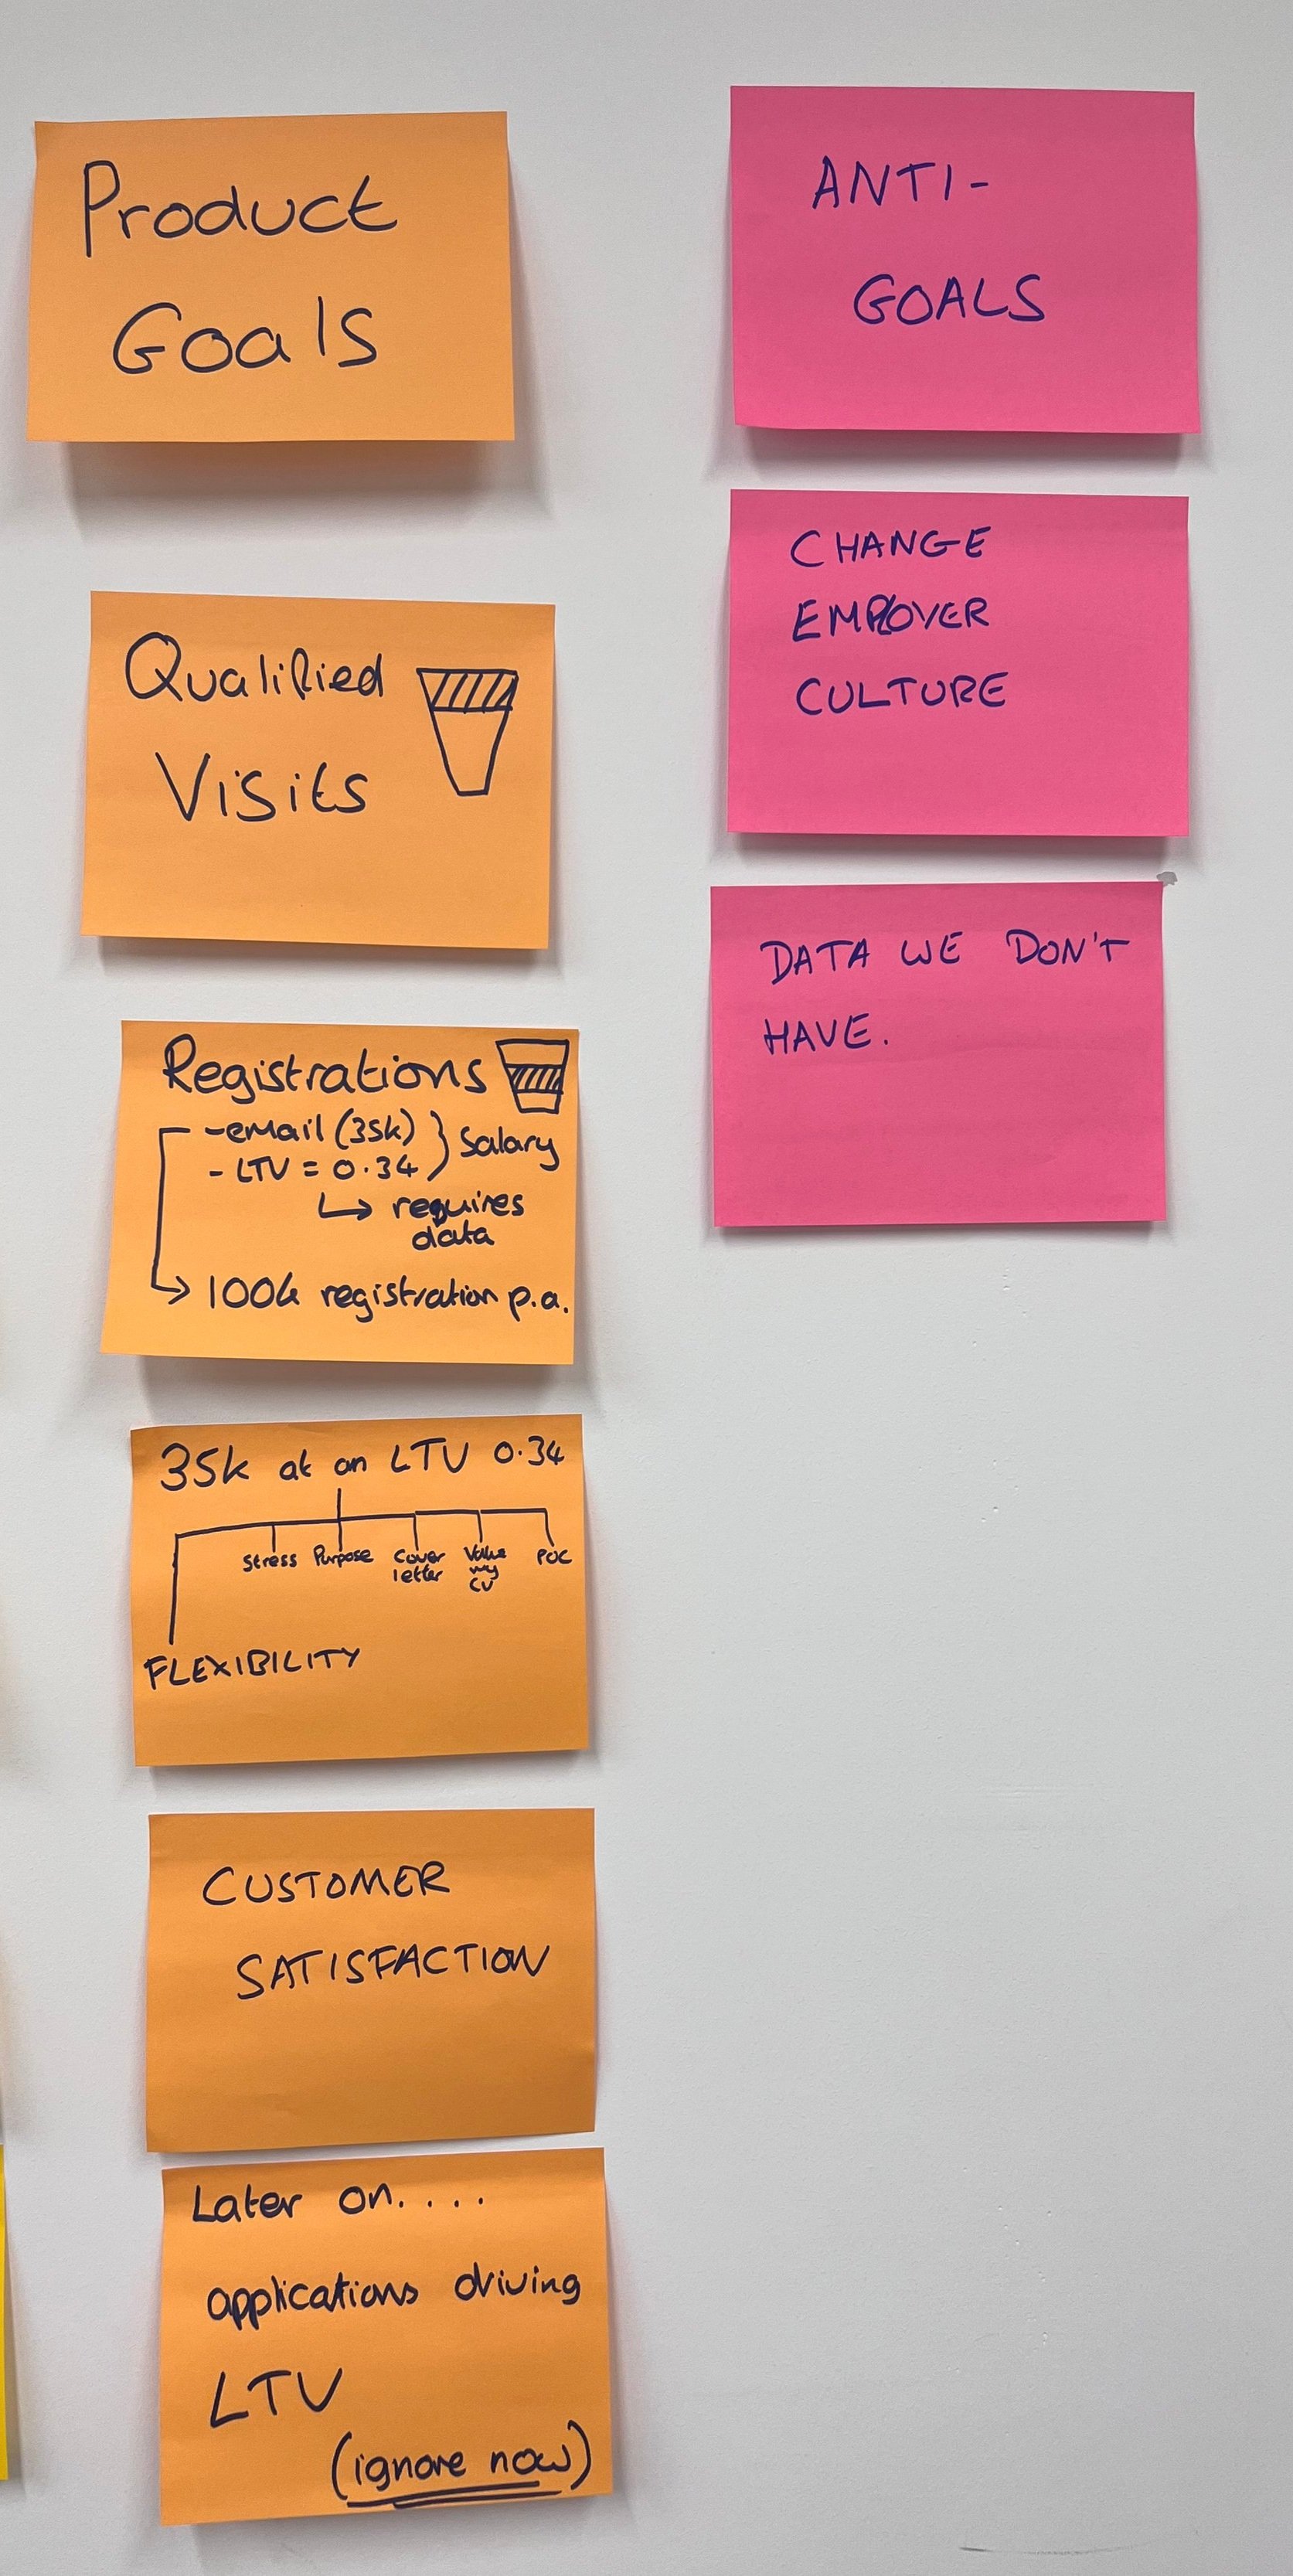 Product
Goals
Qualified
Visits
Registrations
- email (35k) } Salary
- LTV = 0.34
↳ requires
data
→ 100k registration p.a.
35k at an LTV 0.34
Stress Purpose Cover letter Value my CV POC
FLEXIBILITY
CUSTOMER
SATISFACTION
Later on....
applications driving
LTV
(ignore now)
ANTI-
GOALS
CHANGE
EMPLOYER
CULTURE
DATA WE DON'T
HAVE.